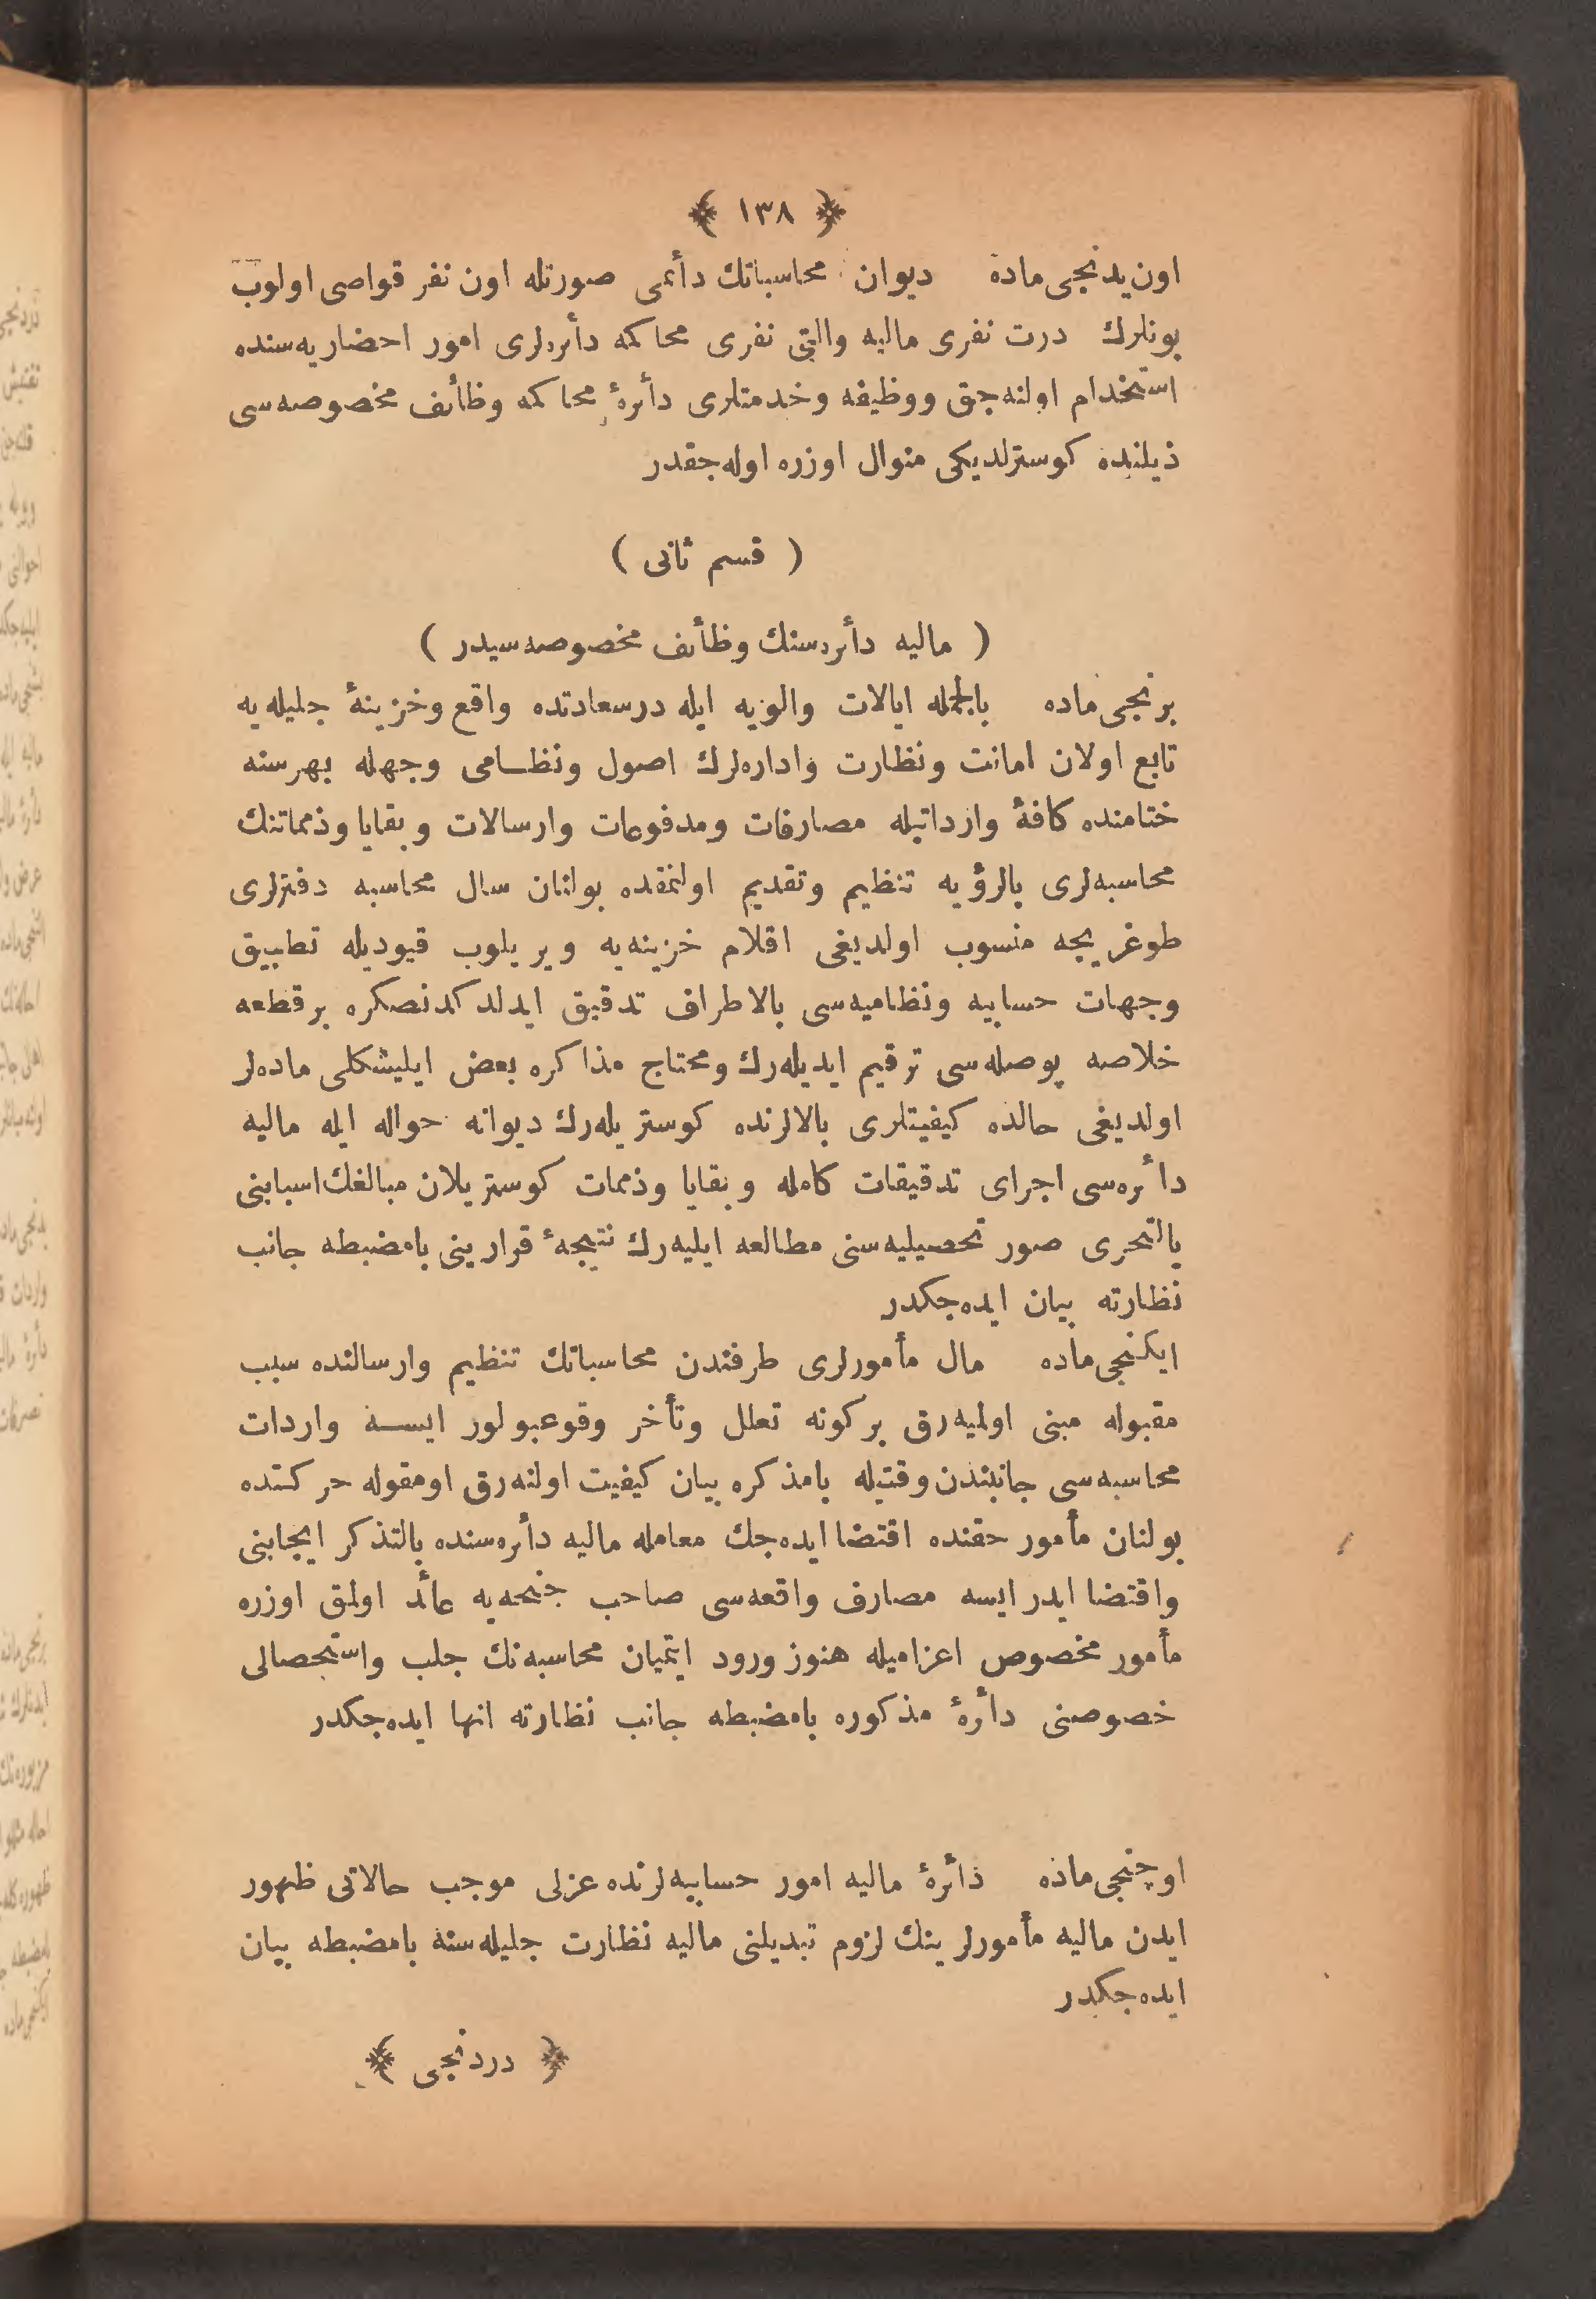 ﴿ ١٣٨ ﴾
اون‌یدنجی‌ماده دیوان محاسباتك دأئمی صورتله اون نفر قواصی اولوب
بونلرك درت نفری مالیه والتی نفری محاکمه دأئره‌لری امور احضاریه‌سنده
استخدام اولنه‌جق ووظیفه وخدمتلری دأئرۀ محاکمه وظأئف مخصوصه‌سی
ذیلنده کوسترلدیکی منوال اوزره اوله‌جقدر
( قسم ثانی )
( مالیه دأئره‌سنك وظأئف مخصوصه‌سیدر )
برنجی‌ماده بالجمله ایالات والویه ایله درسعادتده واقع وخزینۀ جلیله‌یه
تابع اولان امانت ونظارت واداره‌لرك اصول ونظامی وجهله بهرسنه
ختامنده کافۀ وارداتیله مصارفات ومدفوعات وارسالات وبقایا وذمماتنك
محاسبه‌لری بالرؤیه تنظیم وتقدیم اولنمقده بولنان سال محاسبه دفترلری
طوغریجه منسوب اولدیغی اقلام خزینه‌یه ویریلوب قیودیله تطبیق
وجهات حسابیه ونظامیه‌سی بالاطراف تدقیق ایدلدکدنصکره برقطعه
خلاصه پوصله‌سی ترقیم ایدیله‌رك ومحتاج مذاکره بعض ایلیشکلی ماده‌لر
اولدیغی حالده کیفیتلری بالالرنده کوستریله‌رك دیوانه حواله ایله مالیه
دأئره‌سی اجرای تدقیقات کامله وبقایا وذممات کوستریلان مبالغك‌اسبابنی
بالتحری صور تحصیلیه‌سنی مطالعه ایلیه‌رك نتیجۀ قرارینی بامضبطه جانب
نظارته بیان ایده‌جکدر
ایکنجی‌ماده مال مأمورلری طرفندن محاسباتك تنظیم وارسالنده سبب
مقبوله مبنی اولمیه‌رق برکونه تعلل وتأخر وقوعبولور ایسه واردات
محاسبه‌سی جانبندن‌وقتیله بامذکره بیان کیفیت اولنه‌رق اومقوله حرکتده
بولنان مأمور حقنده اقتضا ایده‌جك معامله مالیه دأئره‌سنده بالتذکر ایجابنی
واقتضا ایدر ایسه مصارف واقعه‌سی صاحب جنحه‌یه عأئد اولمق اوزره
مأمور مخصوص اعزامیله هنوز ورود ایتمیان محاسبه‌نك جلب واستحصالی
خصوصنی دأئرۀ مذکوره بامضبطه جانب نظارته انها ایده‌جکدر
اوچنجی‌ماده دأئرۀ مالیه امور حسابیه‌لرنده عزلی موجب حالاتی ظهور
ایدن مالیه مأمورلرینك لزوم تبدیلنی مالیه نظارت جلیله‌سنه بامضبطه بیان
ایده‌جکدر
﴿ دردنجی ﴾